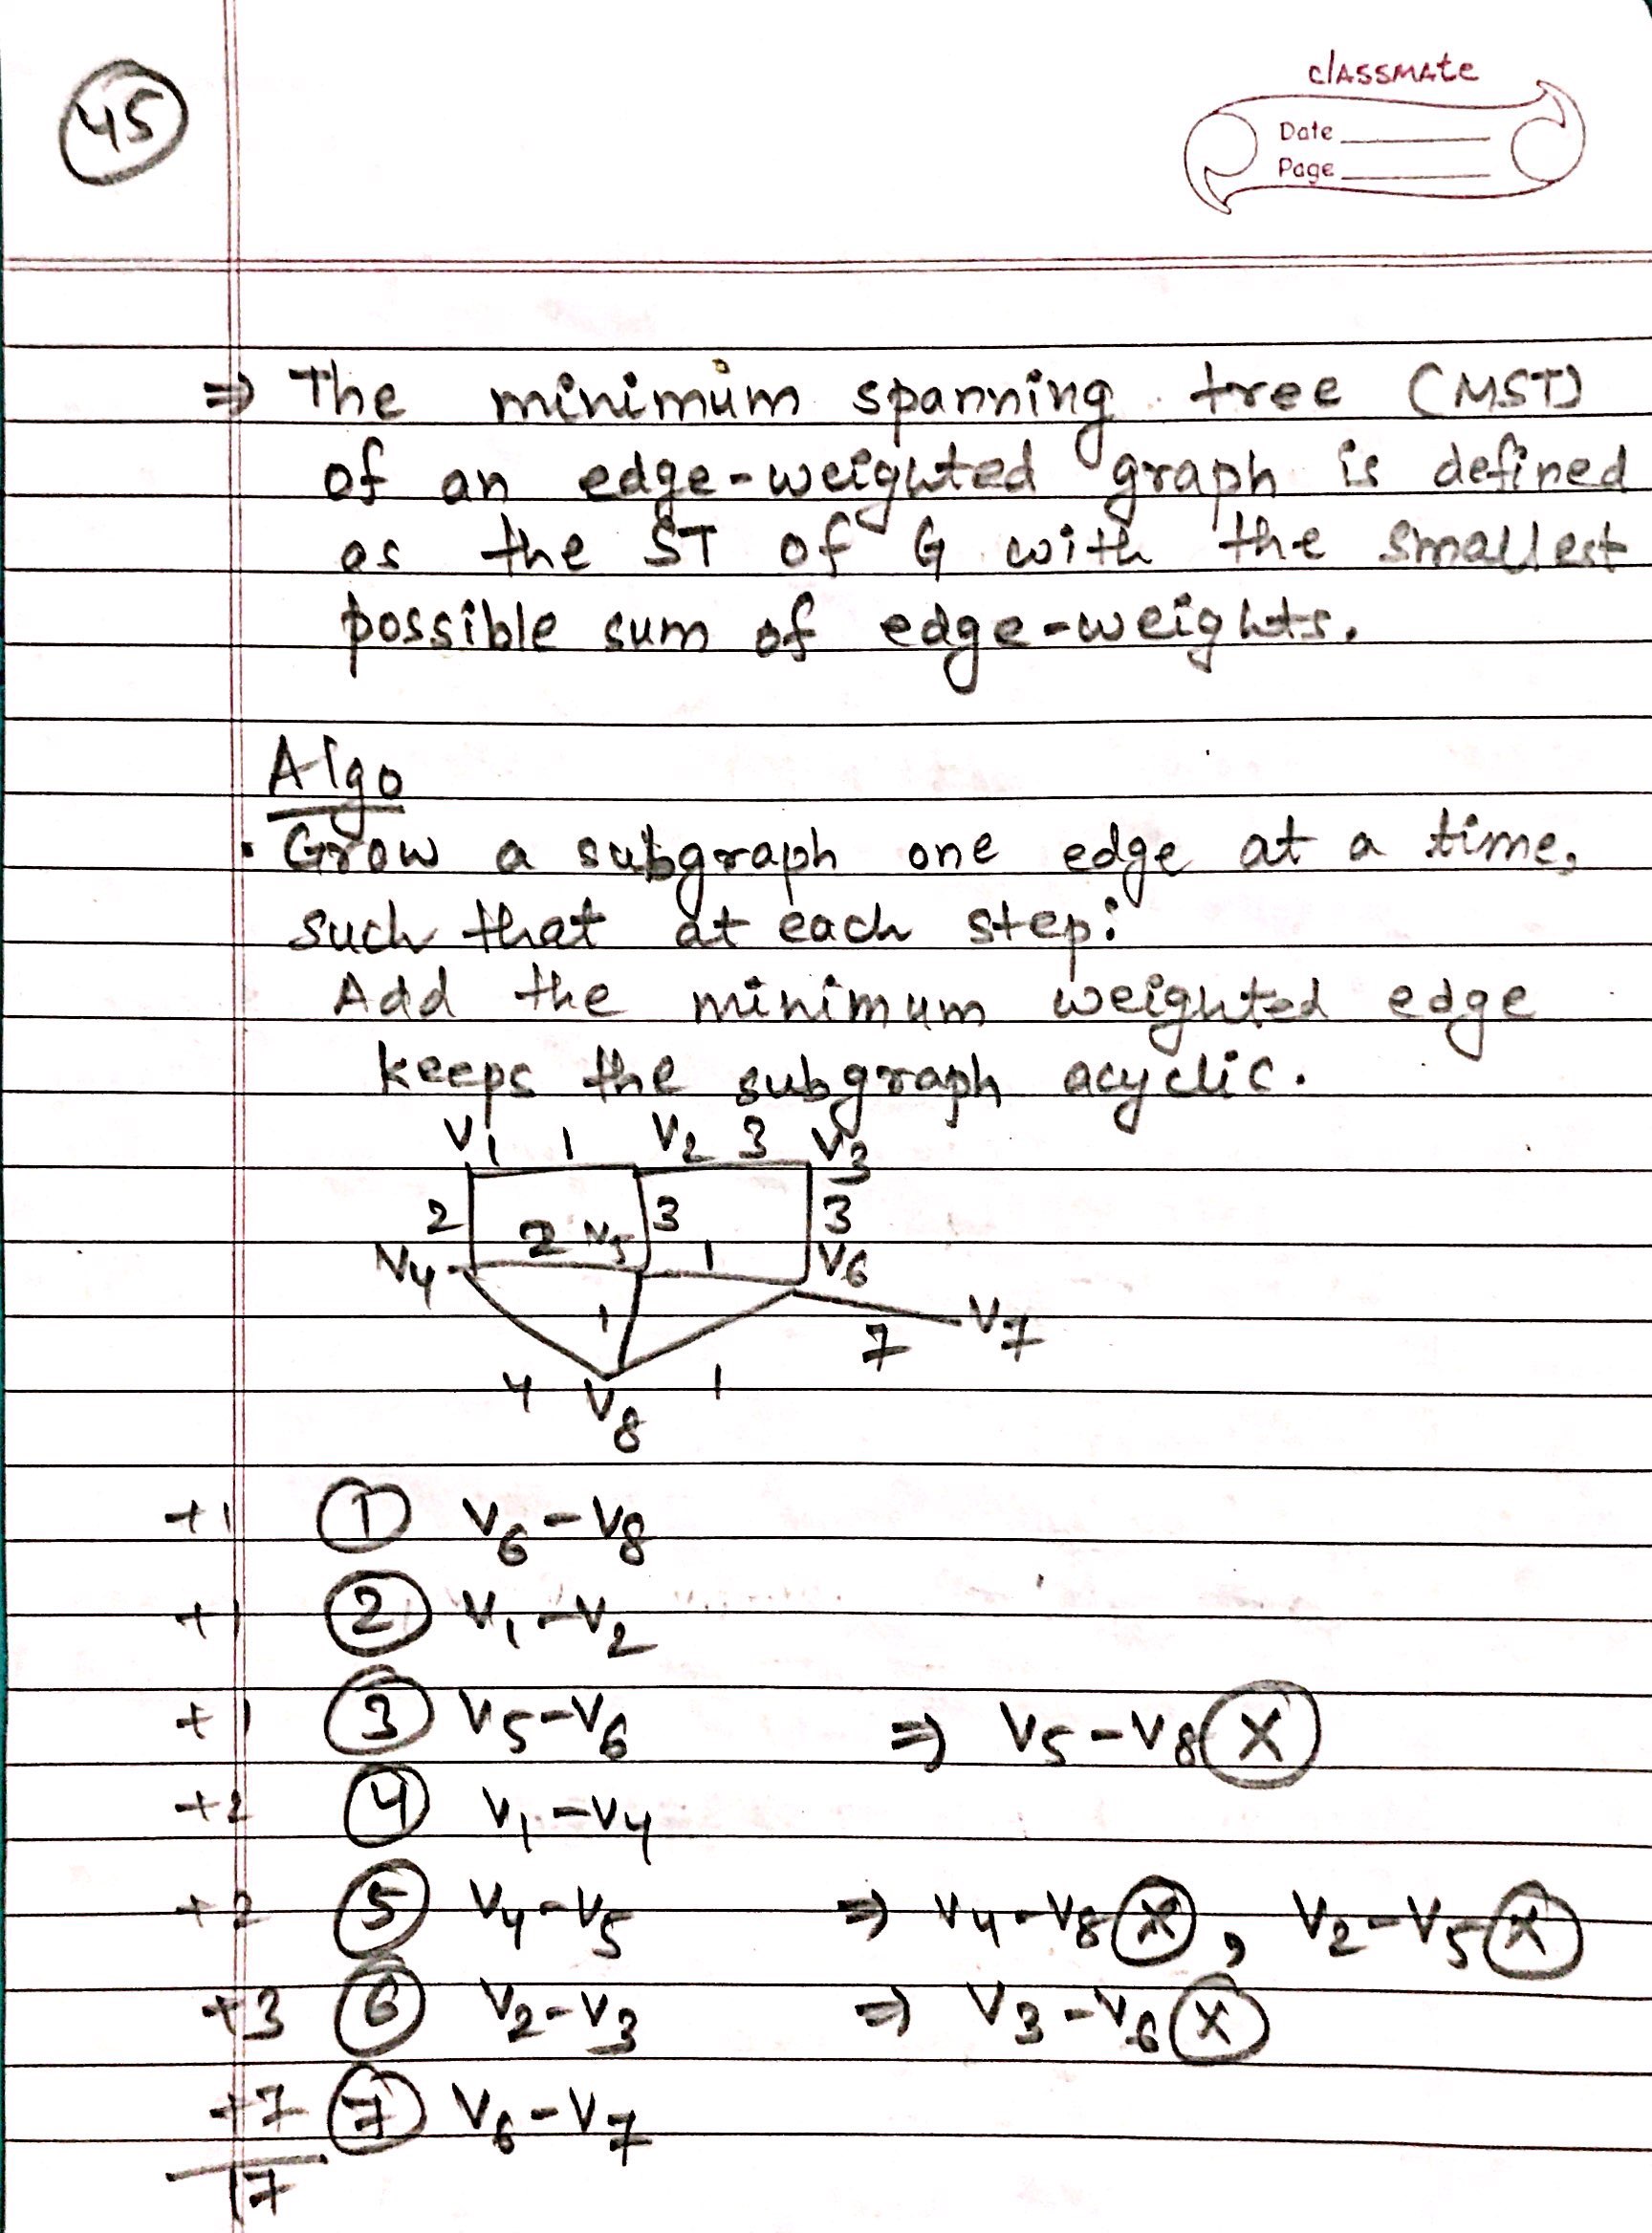 45
classmate
Date
Page
⇒ The minimum spanning tree (MST)
of an edge-weighted graph is defined
as the ST of G with the smallest
possible sum of edge-weights.
Algo
• Grow a subgraph one edge at a time,
such that at each step:
Add the minimum weighted edge
keeps the subgraph acyclic.
V1 1 V2 3 V3
2 3 3
V4 2 V5 1 V6
1 7 V7
4 V8 1
+1 ① V6-V8
+1 ② V1-V2
+1 ③ V5-V6 ⇒ V5-V8 ⓧ
+2 ④ V1-V4
+2 ⑤ V4-V5 ⇒ V4-V8 ⓧ, V2-V5 ⓧ
+3 ⑥ V2-V3 ⇒ V3-V6 ⓧ
+7 ⑦ V6-V7
17